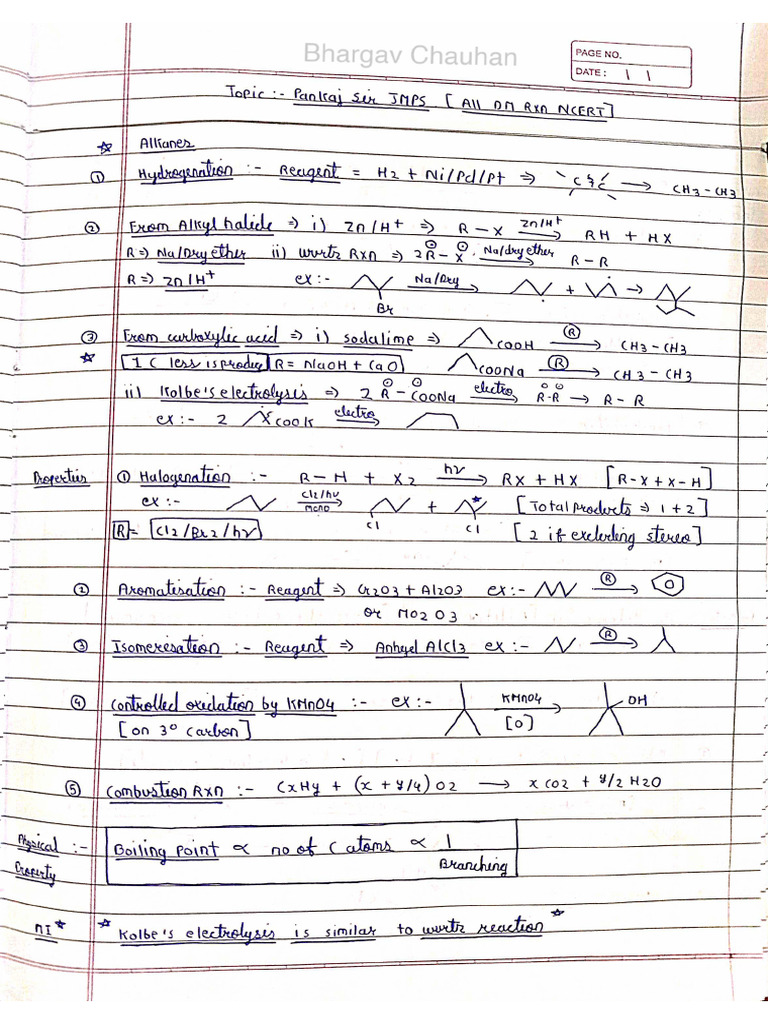 Bhargav Chauhan
PAGE NO.
DATE : / /
Topic :- Pankaj Sir JMPS [ All OM Rxn NCERT]
☆ Alkanes
① Hydrogenation :- Reagent = H2 + Ni/Pd/Pt ⇒ C C → CH3-CH3
② From Alkyl halide ⇒ i) Zn/H+ ⇒ R-X Zn/H+ → RH + HX
R ⇒ Na/Dry ether ii) wurtz Rxn ⇒ 2R-X Na/dry ether → R-R
R ⇒ Zn/H+ ex :- Br Na/Dry → + →
③ From carboxylic acid ⇒ i) sodalime ⇒ COOH Ⓡ → CH3-CH3
☆ 1 C less is produ R = NaOH + CaO COONa Ⓡ → CH3-CH3
ii) Kolbe's electrolysis ⇒ 2 R-COONa electro → R-R → R-R
ex :- 2 COOK electro →
Properties ① Halogenation :- R-H + X2 hν → RX + HX [R-X + X-H]
ex :- Cl2/hν mono → Cl + Cl [Total products ⇒ 1+2]
R = Cl2/Br2/hν [2 if excluding stereo]
② Aromatisation :- Reagent ⇒ Cr2O3 + Al2O3 ex :- Ⓡ →
or Mo2O3
③ Isomeresation :- Reagent ⇒ Anhyd AlCl3 ex :- Ⓡ →
④ Controlled oxidation by KMnO4 :- ex :- KMnO4 [O] → OH
[on 3° carbon]
⑤ Combustion Rxn :- CxHy + (x + y/4) O2 → x CO2 + y/2 H2O
Physical :- Boiling point ∝ no of C atoms ∝ 1
Property Branching
NI* * Kolbe's electrolysis is similar to wurtz reaction *